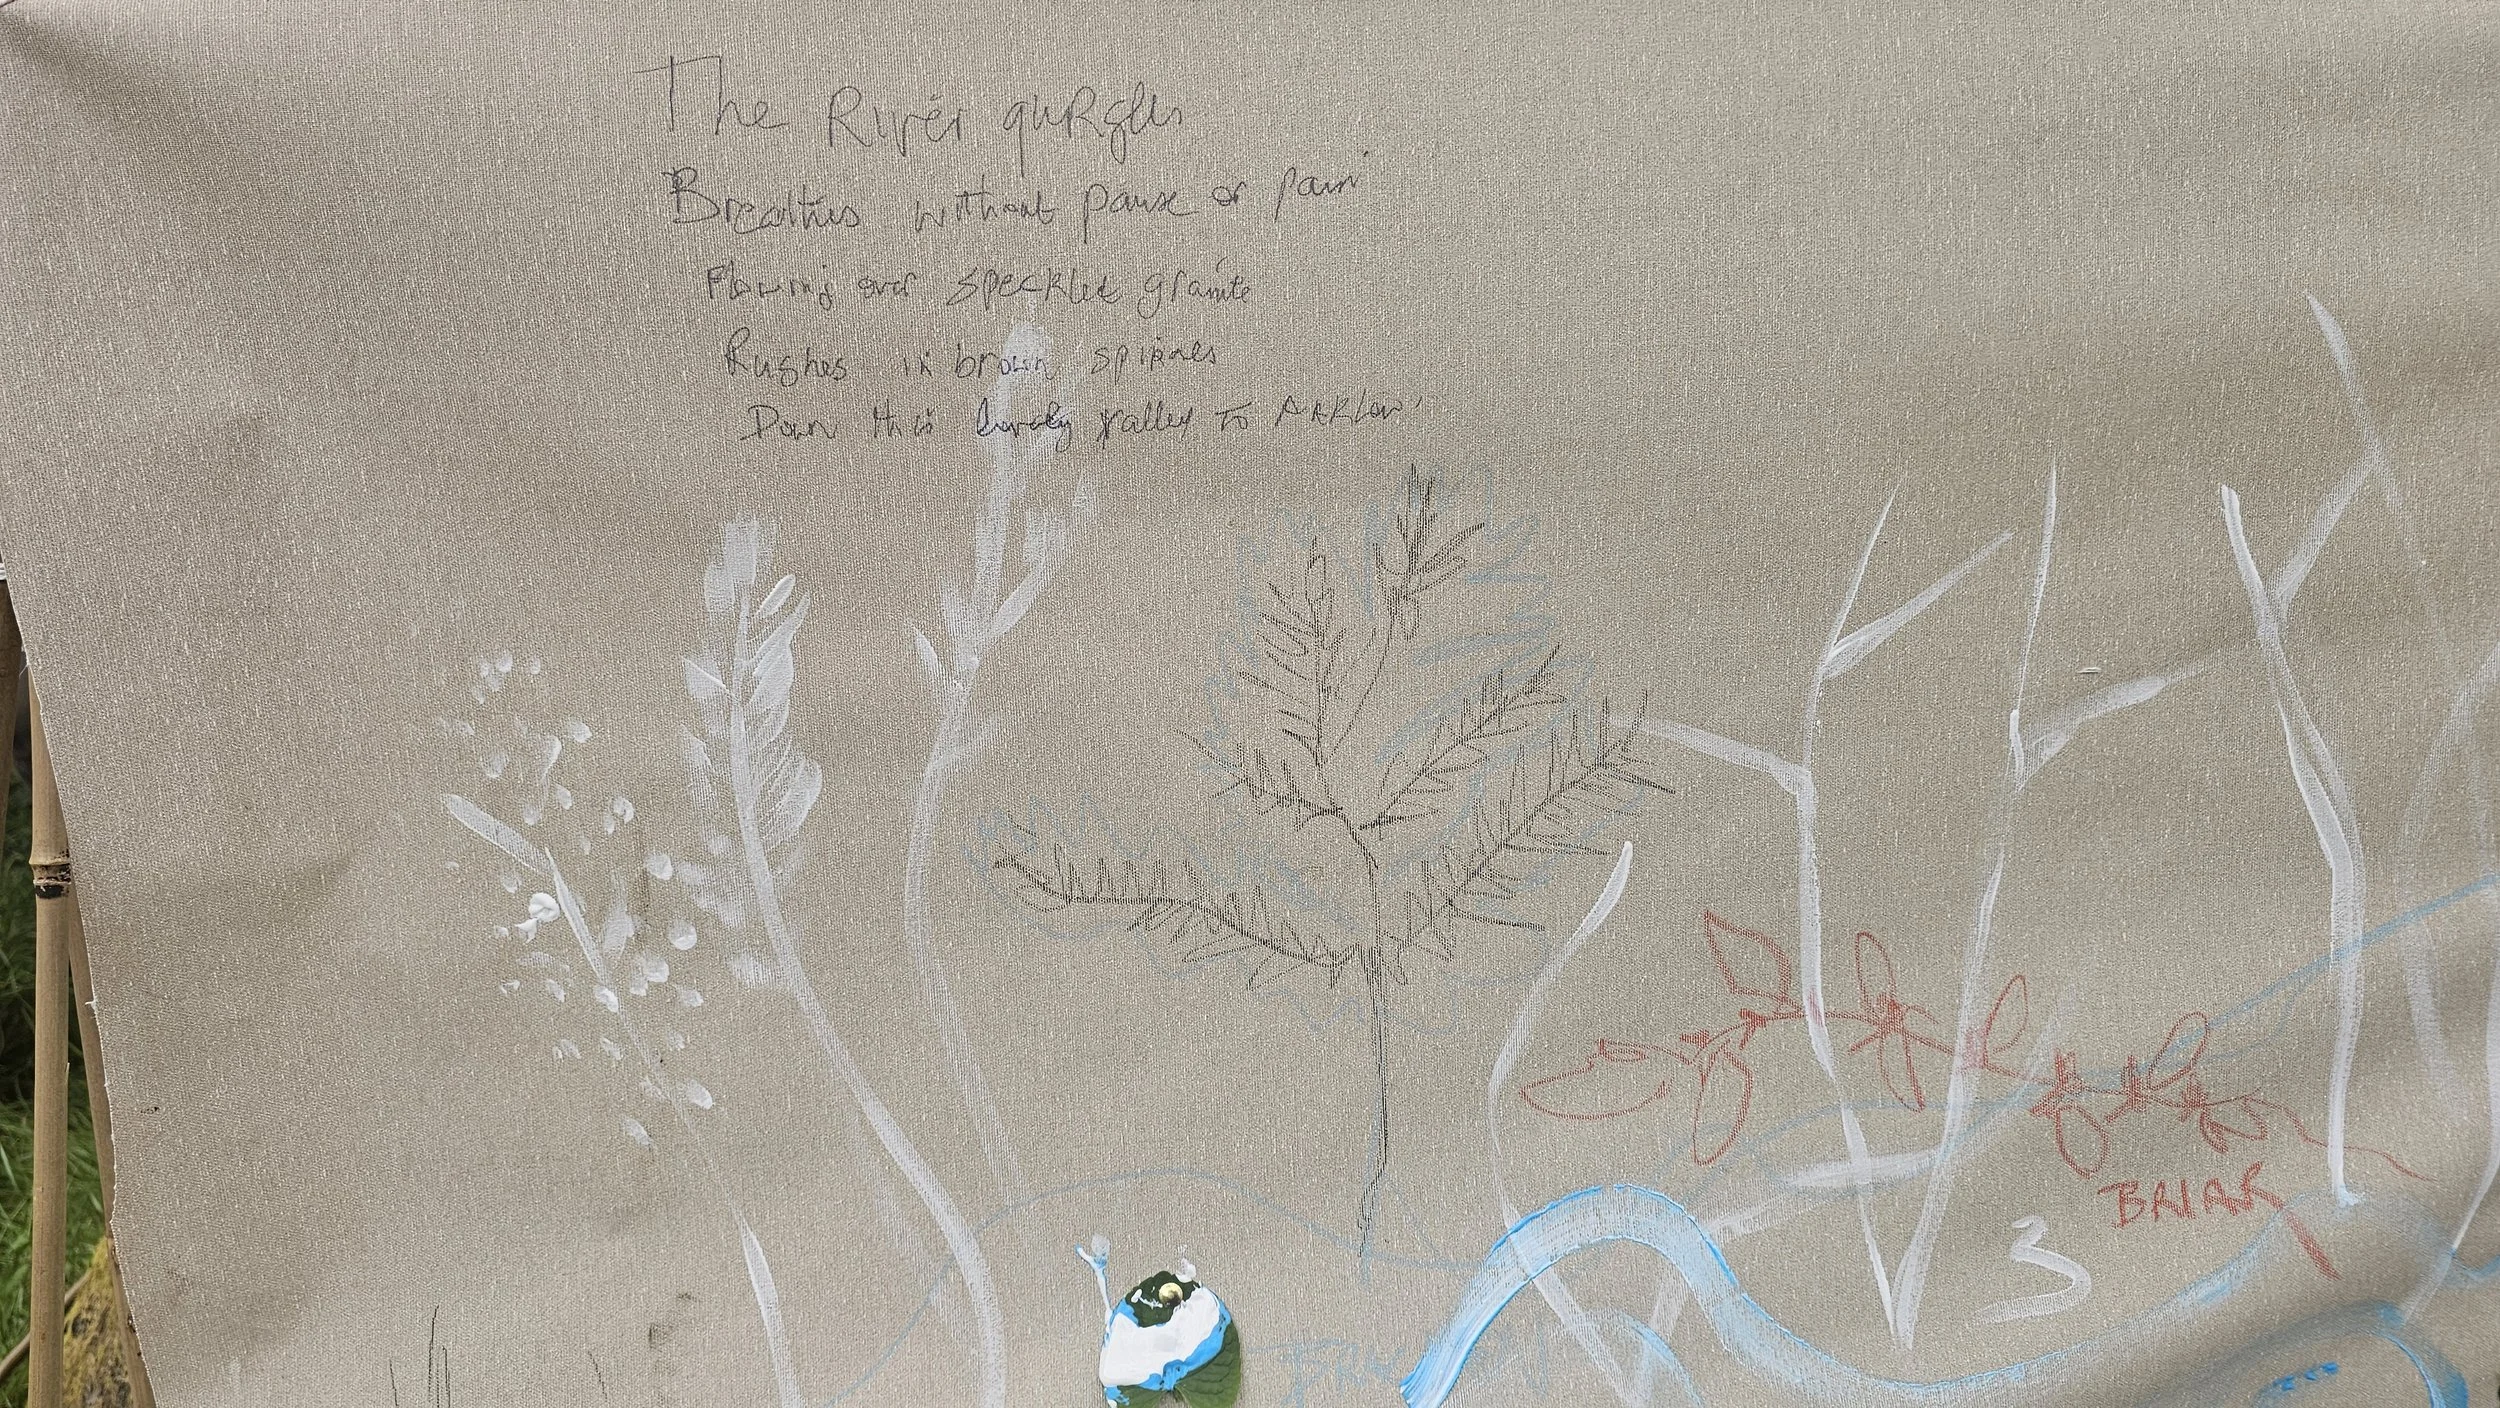 The River gurgles
Breathes without pause or pain
Flowing over speckled granite
Rushes in brown
Down this lovely valley to Arklow
BRIAR
3